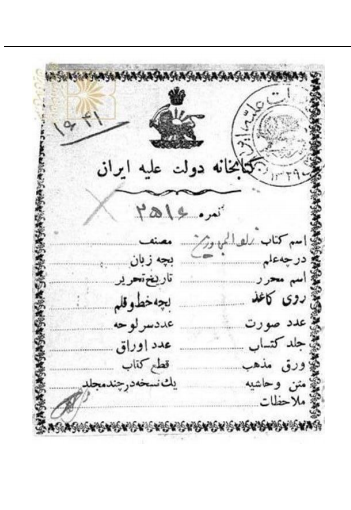 ۱۶۴۱
کتابخانه دولت علیه ایران
نمره ۲۵۱۶
اسم کتاب مصنف
در چه علم بچه زبان
اسم محرر تاریخ تحریر
روی کاغذ بچه خط و قلم
عدد صورت عدد سرلوحه
جلد کتاب عدد اوراق
ورق مذهب قطع کتاب
متن و حاشیه یک نسخه در چند مجلد
ملاحظات